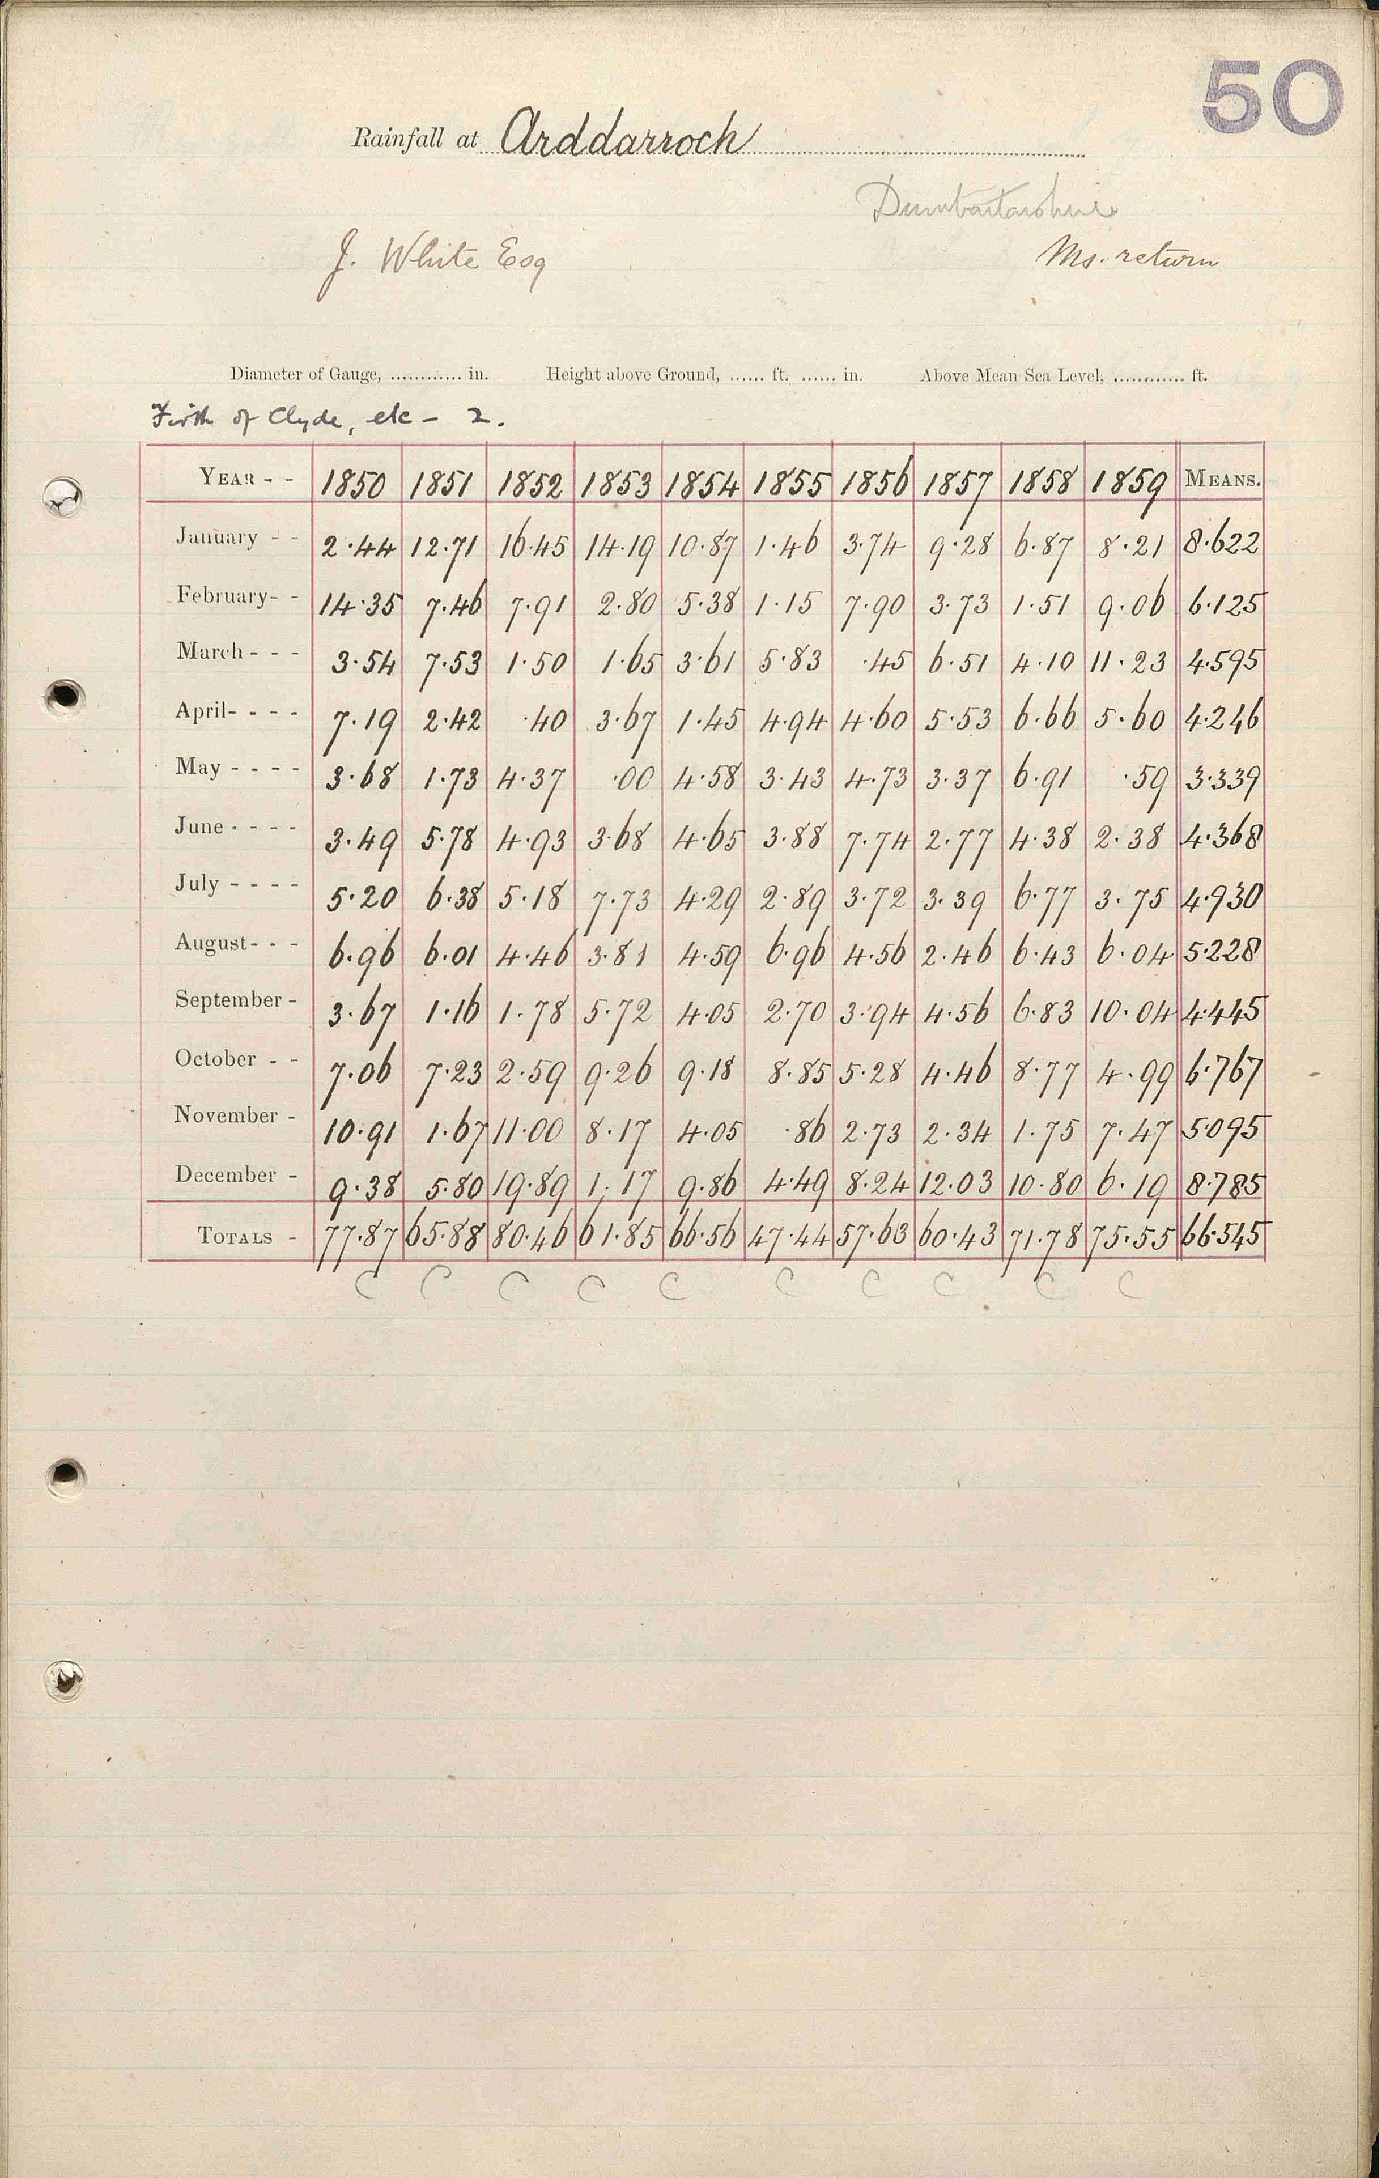 50
Rainfall at Arddarroch
Dumbartonshire
J. White Esq
Ms. return
Diameter of Gauge, ............ in. Height above Ground, ...... ft. ...... in. Above Mean Sea Level, ............ ft.
Firth of Clyde, etc - 2.
YEAR - - 1850 1851 1852 1853 1854 1855 1856 1857 1858 1859 MEANS.
January - - 2.44 12.71 16.45 14.19 10.87 1.46 3.74 9.28 6.87 8.21 8.622
February - - 14.35 7.46 7.91 2.80 5.38 1.15 7.90 3.73 1.51 9.06 6.125
March - - - 3.54 7.53 1.50 1.65 3.61 5.83 .45 6.51 4.10 11.23 4.595
April - - - - 7.19 2.42 .40 3.67 1.45 4.94 4.60 5.53 6.66 5.60 4.246
May - - - - 3.68 1.73 4.37 .00 4.58 3.43 4.73 3.37 6.91 .59 3.339
June - - - - 3.49 5.78 4.93 3.68 4.65 3.88 7.74 2.77 4.38 2.38 4.368
July - - - - 5.20 6.38 5.18 7.73 4.29 2.89 3.72 3.39 6.77 3.75 4.930
August - - - 6.96 6.01 4.46 3.81 4.59 6.96 4.56 2.46 6.43 6.04 5.228
September - 3.67 1.16 1.78 5.72 4.05 2.70 3.94 4.56 6.83 10.04 4.445
October - - 7.06 7.23 2.59 9.26 9.18 8.85 5.28 4.46 8.77 4.99 6.767
November - 10.91 1.67 11.00 8.17 4.05 .86 2.73 2.34 1.75 7.47 5.095
December - 9.38 5.80 19.89 1.17 9.86 4.49 8.24 12.03 10.80 6.19 8.785
TOTALS - 77.87 65.88 80.46 61.85 66.56 47.44 57.63 60.43 71.78 75.55 66.545
C C C C C C C C C C